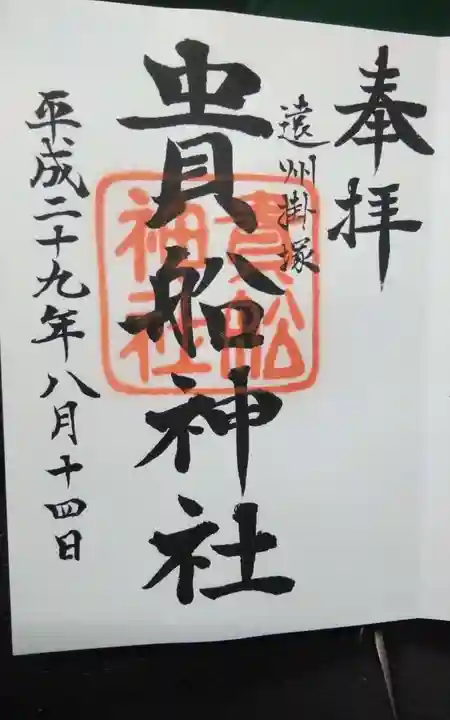 奉拝
遠州掛塚
貴船神社
貴船
神社
平成二十九年八月十四日